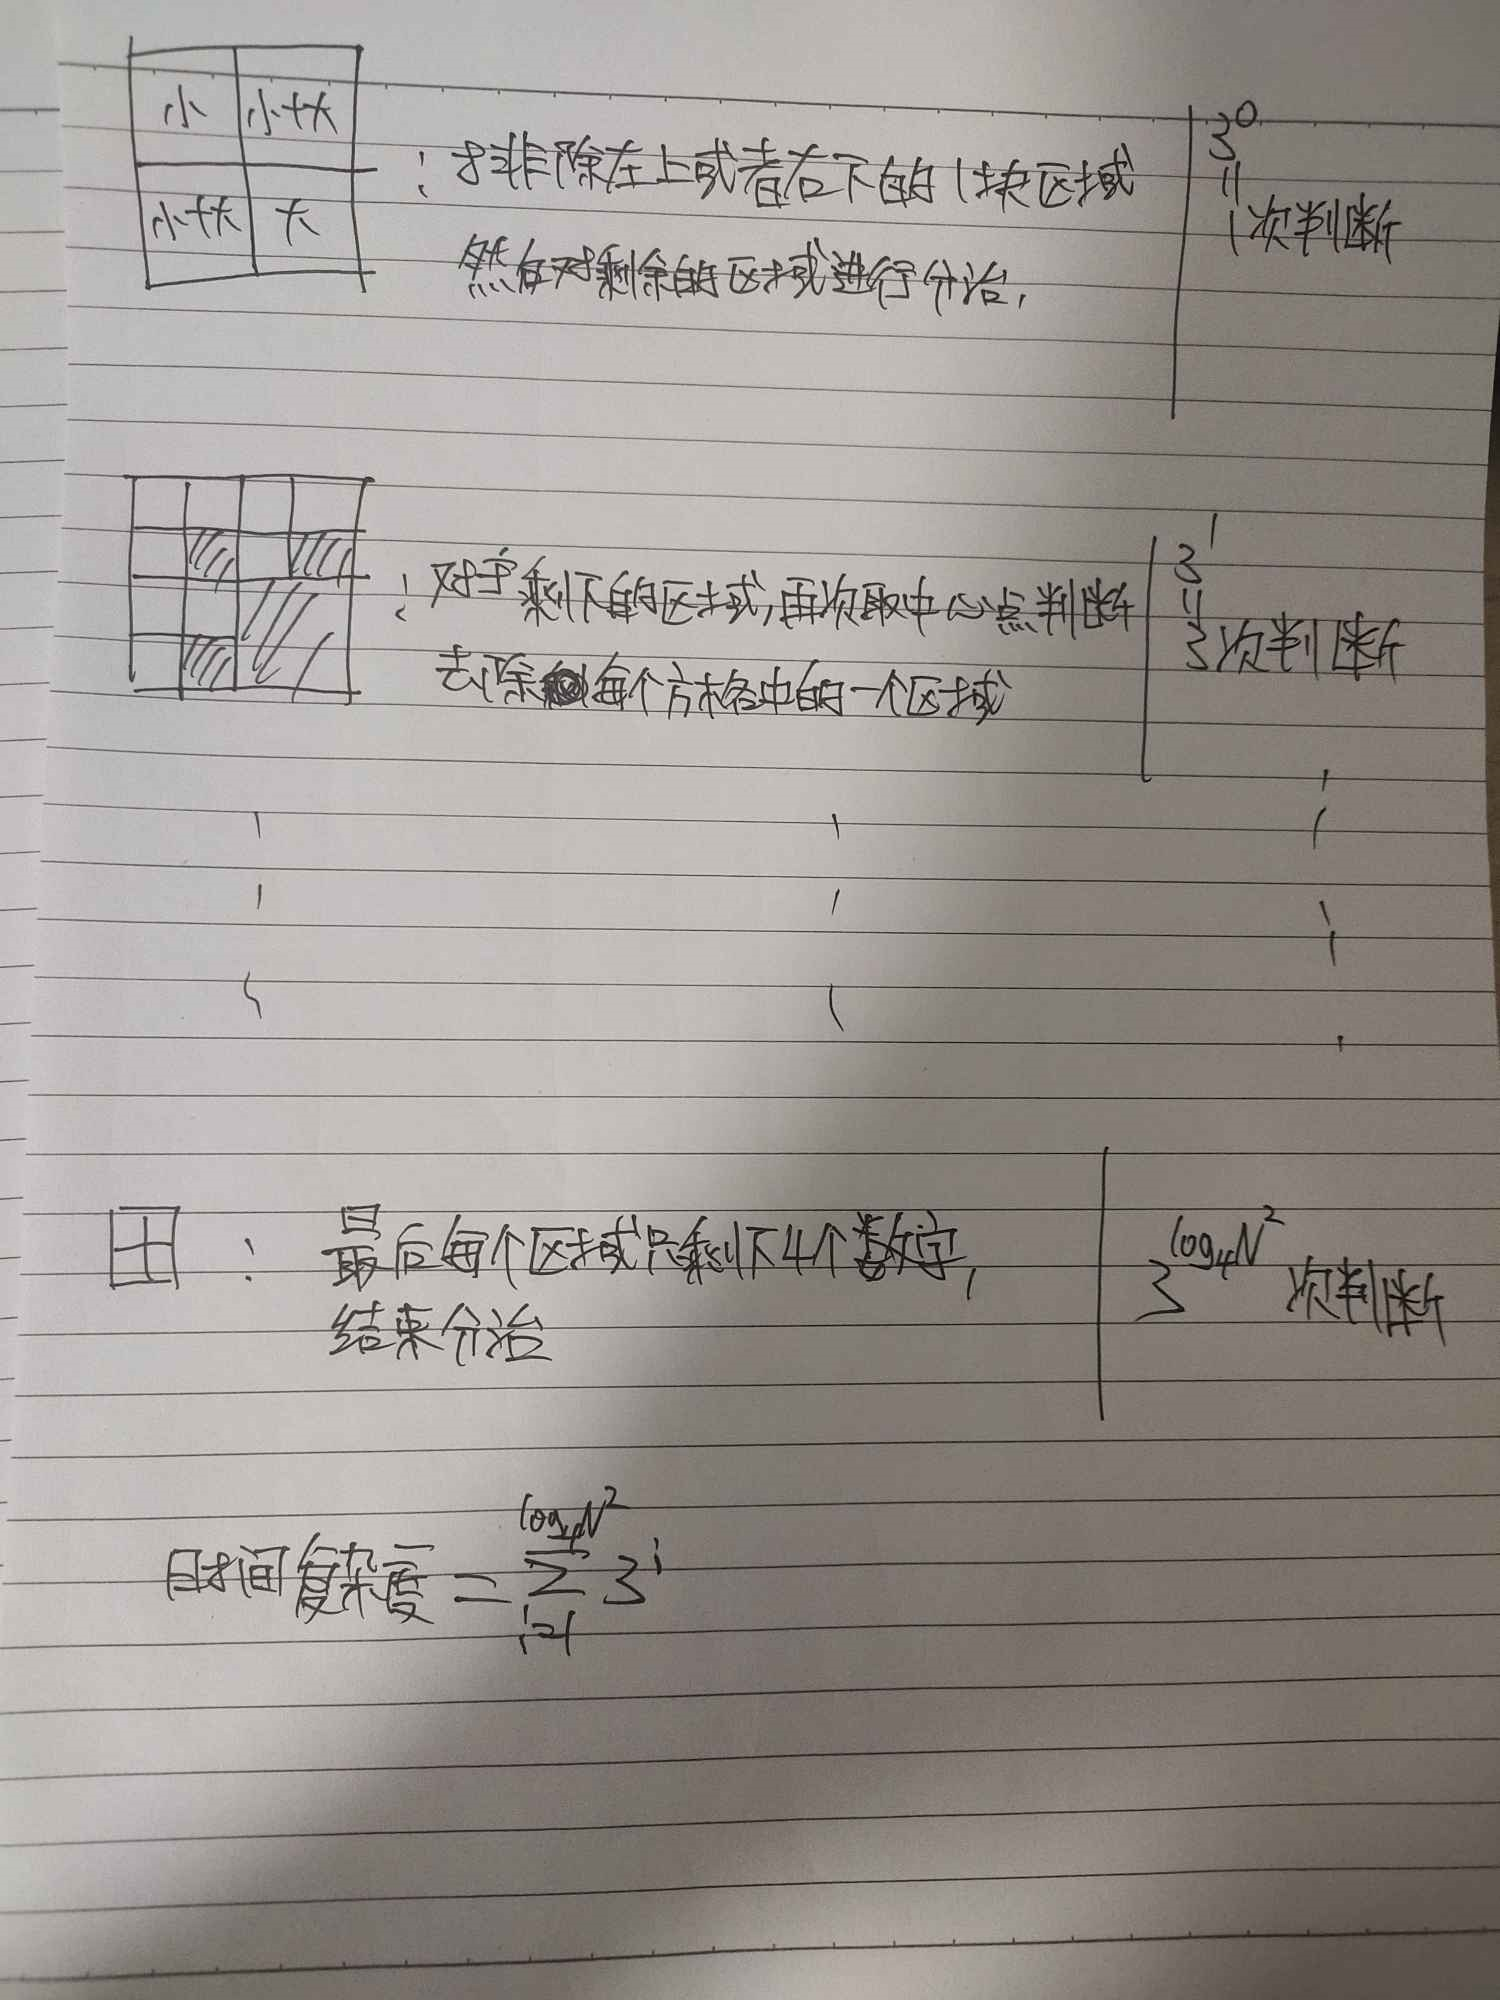 小 小+大
小+大 大
: 排除左上或者右下的1块区域
然后对剩余的区域进行分治,
3^0
=
1次判断
: 对于剩下的区域,再次取中心点判断
去除每个方格中的一个区域
3^1
=
3次判断
: 最后每个区域只剩下4个数字,
结束分治
3^{log_4 N^2} 次判断
时间复杂度 = \sum_{i=1}^{log_4 N^2} 3^i